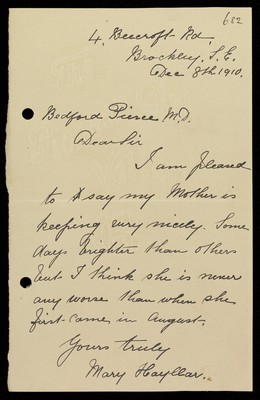 682
4, Beecroft Rd,
Brockley, S.E.
Dec 8th 1910.
Bedford Pierce M.D.
Dear Sir
I am pleased
to say my Mother is
keeping very nicely. Some
days brighter than others
but I think she is never
any worse than when she
first came in August.
Yours truly
Mary Hayllar.